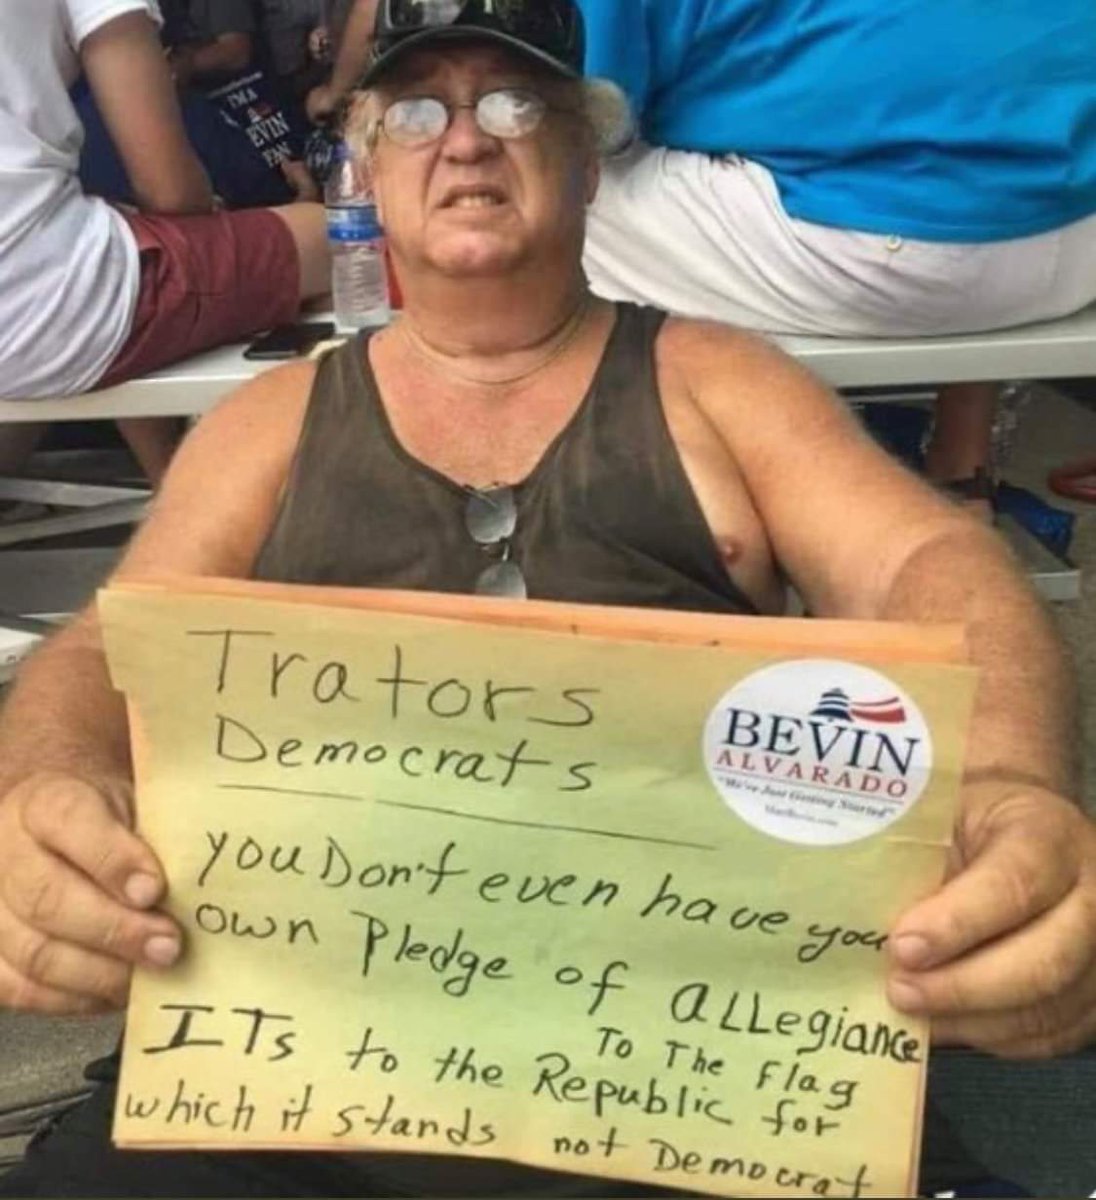 I'M A
BEVIN
FAN
Trators
Democrats
BEVIN
ALVARADO
"We've Just Getting Started"
you Don't even have you
own Pledge of aLLegiance
To The Flag
ITs to the Republic for
which it stands not Democrat